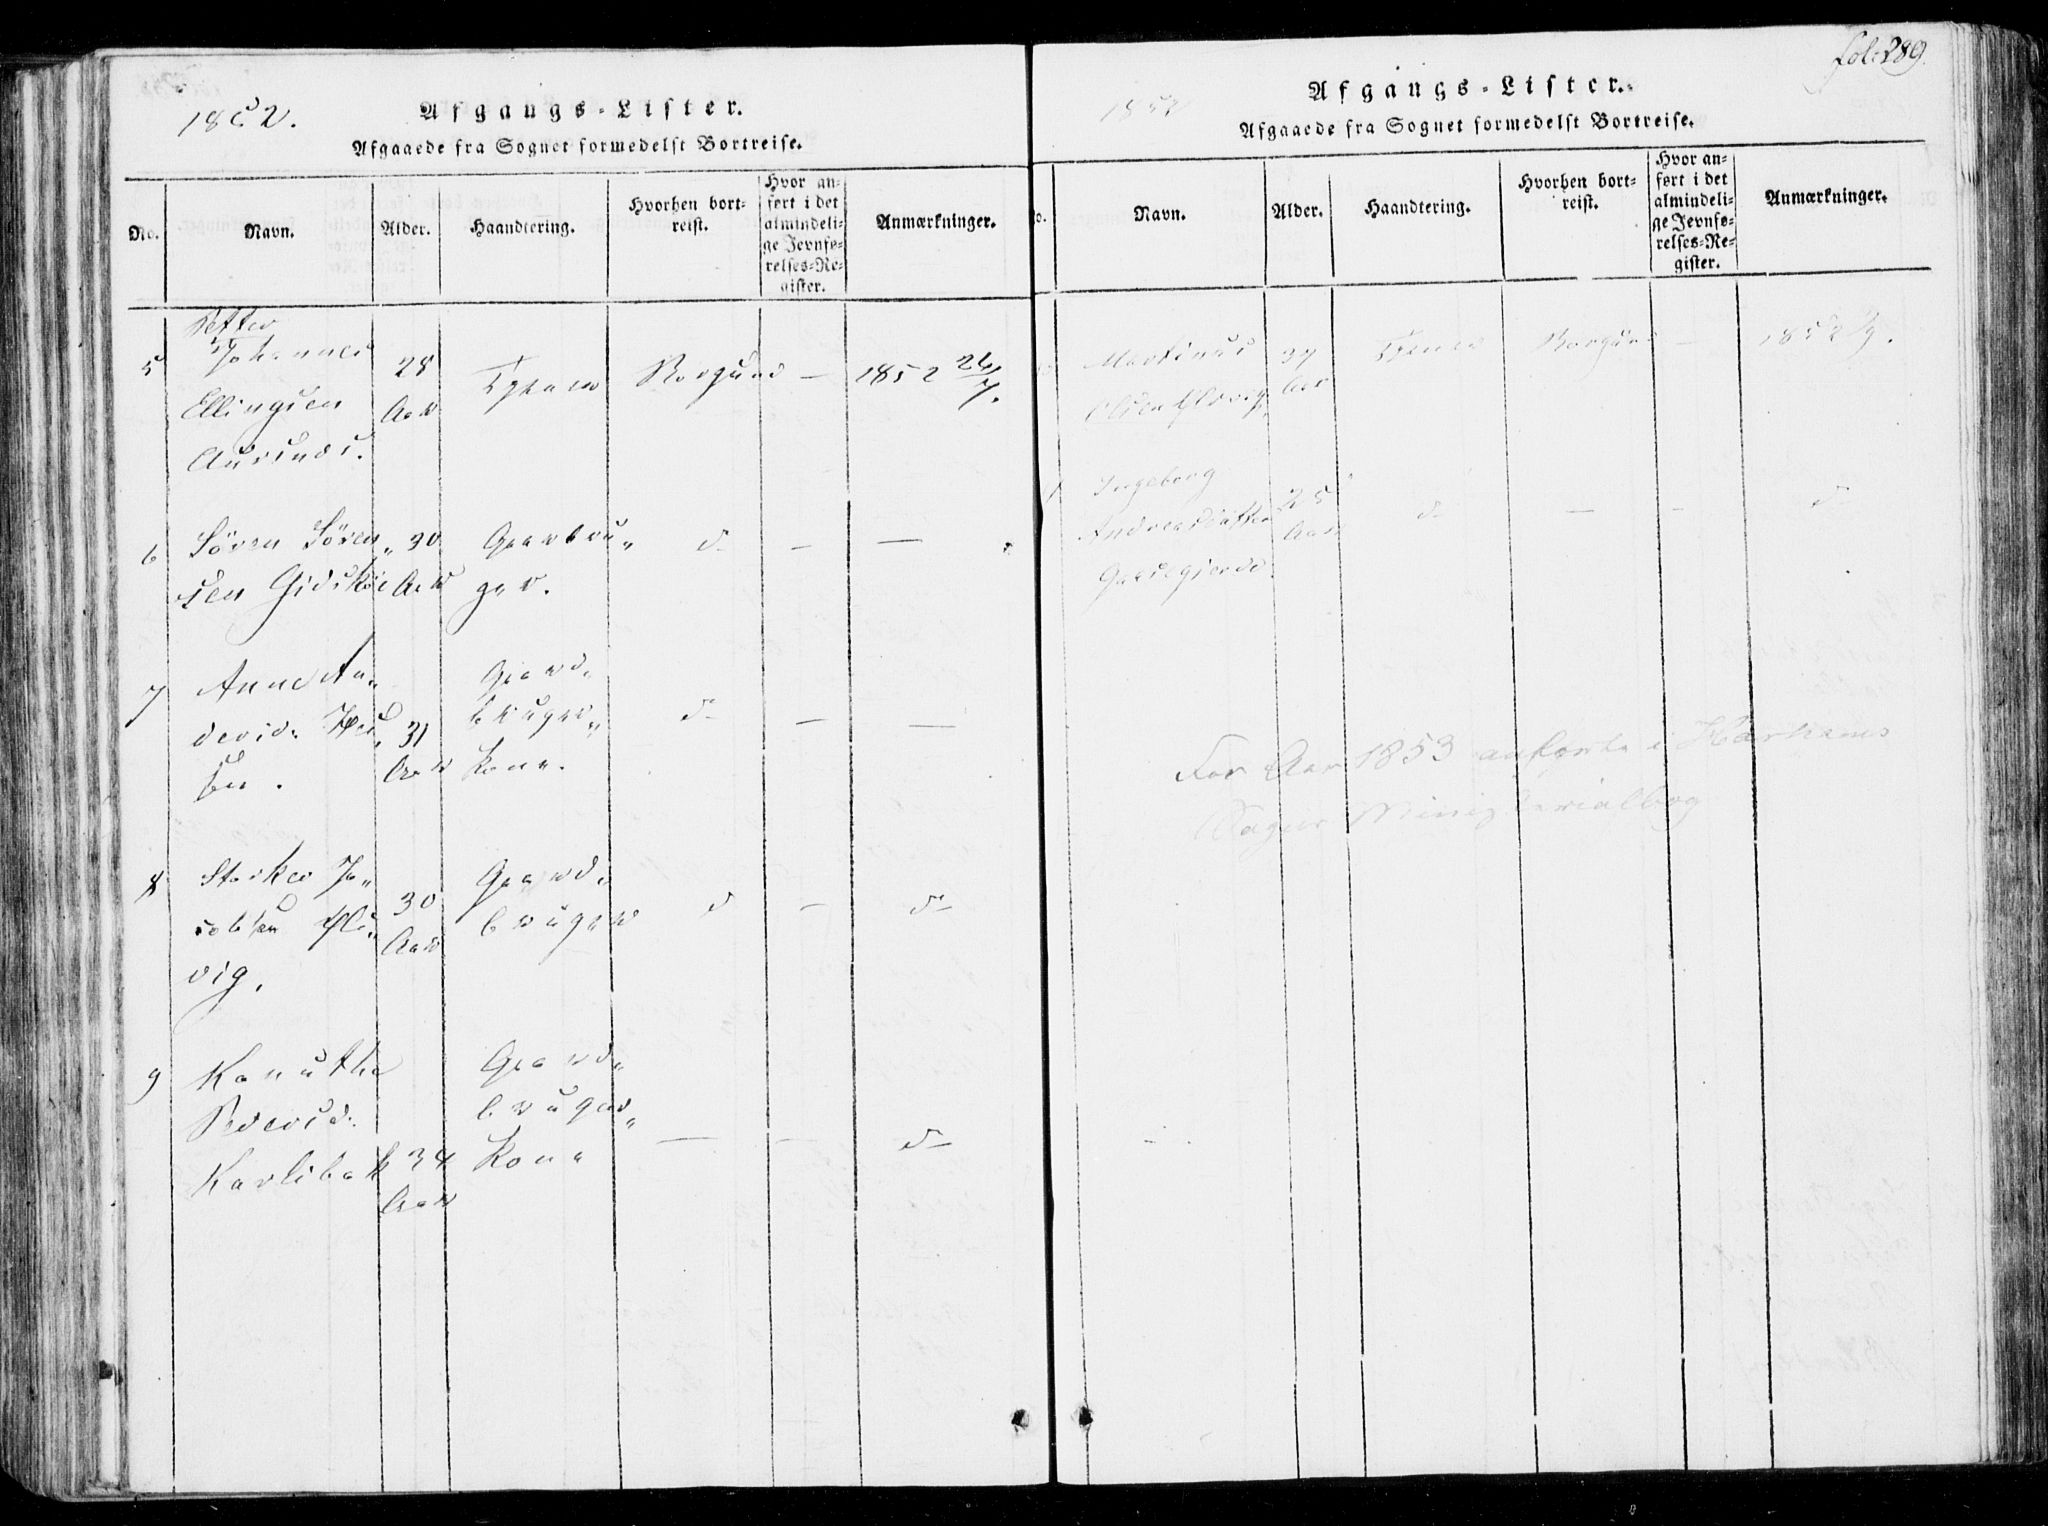 1852.
Afgangs-Lister.
Afgaaede fra Sognet formedelst Bortreise.
No.
Navn.
Alder.
Haandtering.
Hvorhen bort-
reist.
Hvor an-
ført i det
almindeli-
ge Jevnfø-
relses-Re-
gister.
Anmærkninger.
5
Petter
Johannes
Ellingsen
28
Aar
Tjener
Borgund
—
1852 26/7.
6
Søren Søren„
sen Gidskøe
30
Aar
Gaardbru„
ger.
d-
—
—
7
Anne An„
31
Aar
Gaard„
bruger„
kone.
d-
—
—
8
vig.
30
Aar
Gaard„
bruger
d
—
d-
9
Kanutha
Pedersd.
Karlsbak
34
Aar
Gaard„
bruger„
kone
—
—
d-
fol. 289.
1852
Afgangs-Lister.
Afgaaede fra Sognet formedelst Bortreise.
o.
Navn.
Alder.
Haandtering.
Hvorhen bort-
reist.
Hvor an-
ført i det
almindeli-
ge Jevnfø-
relses-Re-
gister.
Anmærkninger.
Martinus
Olsen
Aar
Tjener
Borgund
—
1852
Ingeborg
Andreasdatter
25
Aar
d-
—
-
d-
For Aar 1853 anførte i Harhams
Sogns Ministerialbog